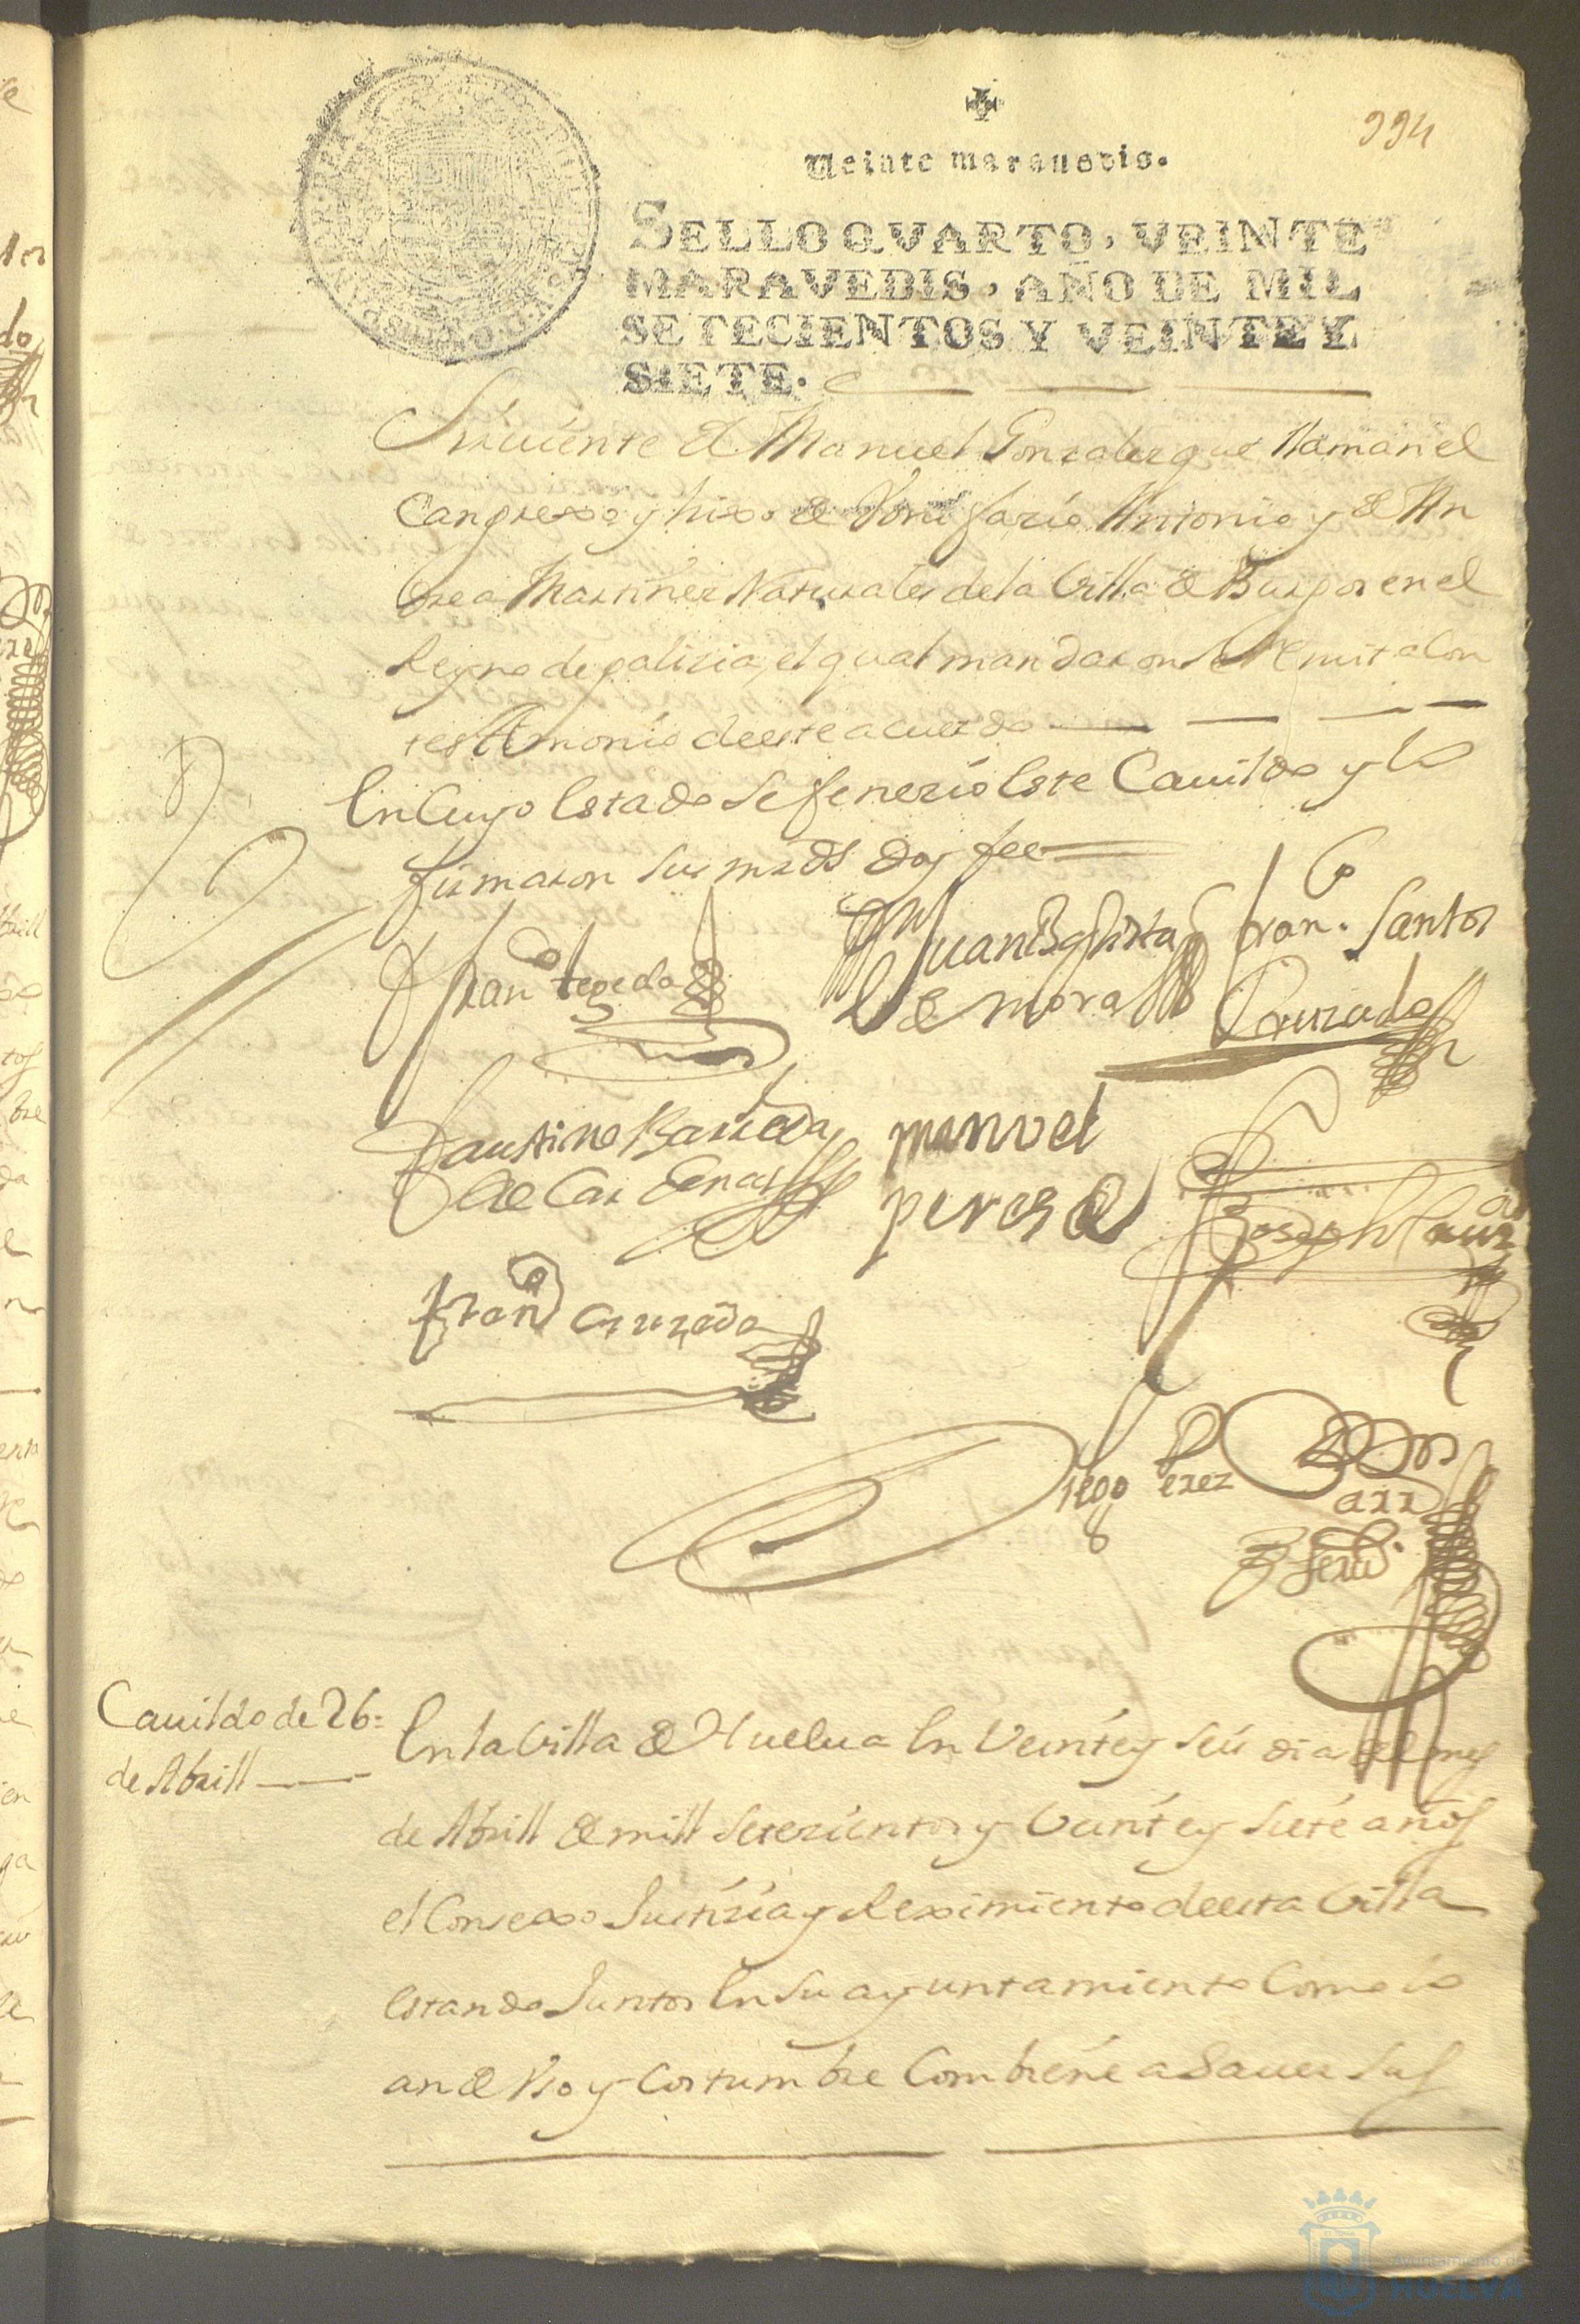 994
Veinte maravedis.
SELLO QVARTO, VEINTE
MARAVEDIS, AÑO DE MIL
SETECIENTOS Y VEINTE Y
SIETE.
Siruiente de Manuel Gonzalez que llaman el
Cangrexo y hixo de Antonio y de An
drea Martinez Naturales de la Villa de Burgos en el
Reyno de galizia, el qual mandaron se Remita Con
testimonio de este acuerdo
En Cuyo Estado se fenezio Este Cauildo y lo
firmaron sus mrds doy fee
Franco tegeda
Juan Baptista
de mora
Fran.co Santos
Cruzado
Faustino Barreda
de Cardenas
manuel
peres
Joseph
Franco Cruzado
Diego Perez
Cauildo de 26
de Abrill
En la Villa de Huelua En Veinte y seis dias del mes
de Abrill de mill setezientos y Veinte y siete años
el Consexo Justizia y Reximiento de esta Villa
Estando Juntos En su ayuntamiento Como lo
an de Vso y Costumbre Combiene a Sauer sus
Ayuntamiento de
HUELVA